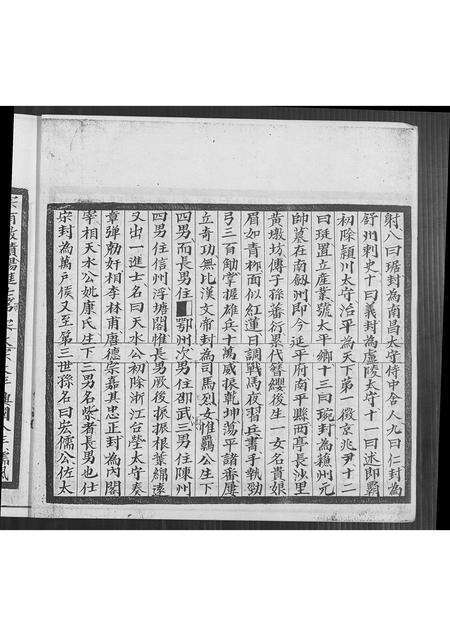 射八曰琚封為南昌太守侍中舍人九曰仁封為
舒州刺史十曰義封為盧陵太守十一曰述即霸
初除穎川太守治平為天下第一徵京兆尹十二
曰珽置立產業號太平鄉十三曰琬封為蘓州元
帥墓在南劔州即今延平府南平縣西亭長沙里
黃墩坊傳子孫蕃衍累代簪纓後生一女名貴娘
眉如青柳面似紅蓮日調戰馬夜習兵書手執勁
弓三百觔掌握雄兵十萬威振乾坤蕩平諸番屢
立奇功無比漢文帝封為司馬烈女惟霸公生下
四男而長男住鄂州次男住邵武三男住陳州
四男住信州浮塘閤惟長男厥後振振根葉綿遠
又出一進士名曰天水公初除浙江台塋太守奏
章彈勅奸相李林甫唐德宗嘉其忠正封為內閣
宰相天水公妣康氏生下三男名紫者長男也仕
宋封為萬戶侯又至第三世孫名曰崇儒公佐太